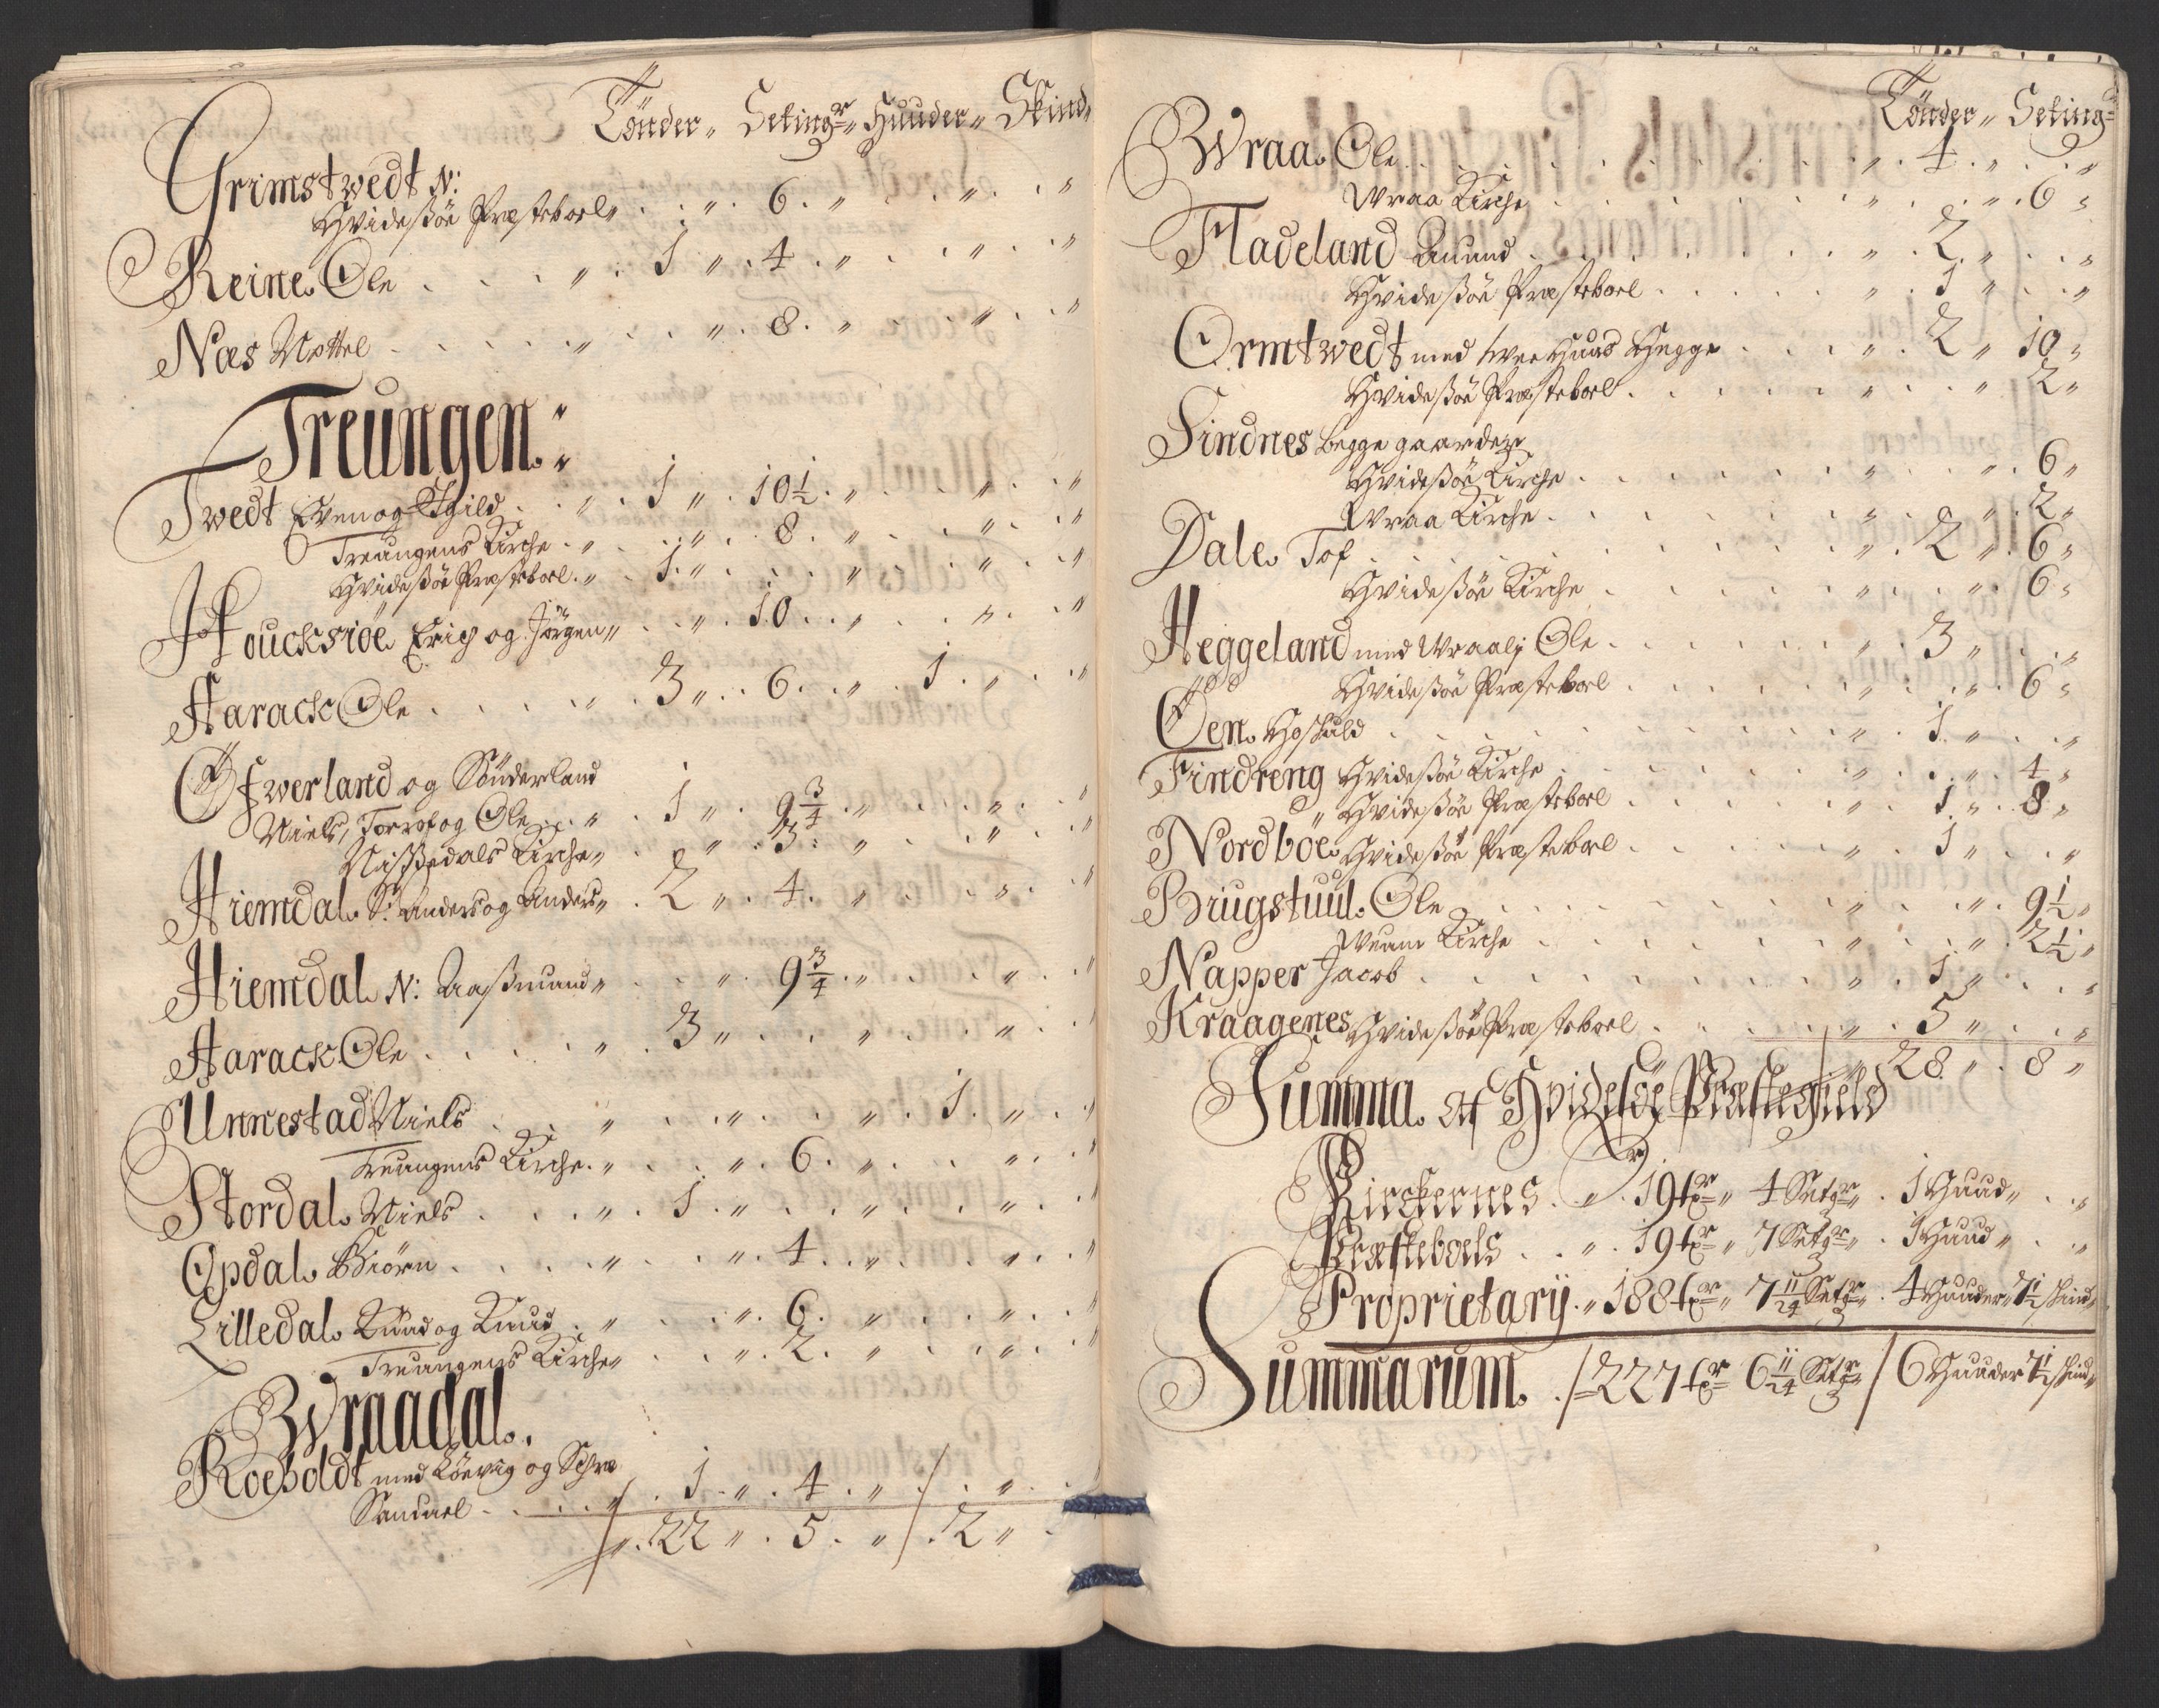 Tönder„ Setingr„ Huuder„ Skind„
Grimstwedt N:
Hvidesøe Præsteboel„ . . „ . 6 . „ . . „ . . „
Reine Ole . . . „ . 1 „ . 4 . „ . . „ . . „
Næs Nottel . . . . . „ . . . „ . 8 . „ . . . „ . . „
Treungen:
Twedt Even og Eschild . . „ . 1 „ . 10½ . „ . . „ . . „
Treungens Kirche . „ . . . „ . 8 . „ . . „ . . „
Hvidesøe Præsteboel . „ . 1 . „ . . . „ . . „ . . „
Houcksiøe Erich og Jörgen„ . . „ . 10 . . „ . . . „ . . „
Harack Ole . . . . „ . 3 „ . . 6 . . „ . 1 . „ . . „
Öfwerland og Sönderland
Niels, Torrof og Ole . . „ . 1 „ . 9¾ . „ . . . „ . . „
Nissedals Kirche„ . . „ . 3 . „ . . . „ . . „
Hiemdal S: Anders og Anders„ . 2 „ . 4 . „ . . . „ . . „
Hiemdal N: Aasmund„ . . . „ . 9¾ . „ . . . „ . . „
Harack Ole . . . . . „ . 3 „ . . . „ . . . „ . . „
Unnestad Niels . . . „ . . . „ . . . „ . 1 . „ . . „
Treungens Kirche . „ . . . „ . 6 . „ . . . „ . . „
Stordal Niels . . . . „ . 1 . „ . . . „ . . . „ . . „
Opdal Biörn . . . . „ . . . „ . 4 . . „ . . . „ . . „
Lilledal Knud og Knud . „ . . . „ . 6 . „ . . . „ . . „
Treungens Kirche„ . . . „ . 2 . „ . . . „ . . „
Wraadal.
Roeholdt med Löevig og
Samuel . . . . „ . 1 . „ . 4 . „ . . „ . .
„ . 22 „ . 5 . „ . 2 „ .
Tönder„ Seting„
Wraa Ole . . . . . . . . . „ . 4 . „ . . „
Wraa Kirche . . . . . . . „ . . . „ . 6 „
Fladeland Auund . . . . . . . „ . 2 . „ . . „
Hvidesøe Præsteboel . . . . . „ . 1 „ . . „
Ormtwedt med twee Huus Hegge . . . „ . 2 „ 10 „
Hvidesøe Præsteboel . . . . . . „ . . „ 2 „
Sindnes begge gaarder
Hvidesøe Kirche . . . . . . „ . . „ . 6 „
Wraa Kirche . . . . . . . „ . . „ . 2 „
Dale Tof . . . . . . . . . „ . 2 „ . 6 „
Hvidesøe Kirche . . . . . „ . . „ . 6 „
Heggeland med Wraalj Ole . . . . . „ . 3 „ . . „
Hvidesøe Præsteboel . . . . . „ . . „ . 6 „
Öen Hoskuld . . . . . . . . „ . 1 . „ . . „
Findreng Hvidesøe Kirche . . . . . . „ . . „ . 4 „
„ Hvidesøe Præsteboel . . . . . „ . 1 „ . 8 „
Nordböe Hvidesøe Præsteboel . . . . . „ . 1 „ . . „
Brugstuul Ole . . . . . . . . „ . . „ . 9½ „
Kirche . . . . . . „ . . „ . 2½ „
Napper Jacob . . . . . . . . „ . 1 „ . . „
Kraagenes Hvidesøe Præsteboel . . . . . „ . 5 „ . . „
„ 28 „ . 8 „
Summa af Hvidesøe Præstegield
Kirckernes . „ . 19 tr„ 4 Setgr„ . 1 Huud„ . . „
Præsteboels . . „ . 19 tr„ 7 Setgr„ . 1 Huud„ . . „
Proprietarij . „ 188 tr„ 7 11/24 Setgr„ . 4 Huuder„ 7½ skind„
Summarum . 227 tr 6 11/24 Setgr„ 6 Huuder 7½ skind„